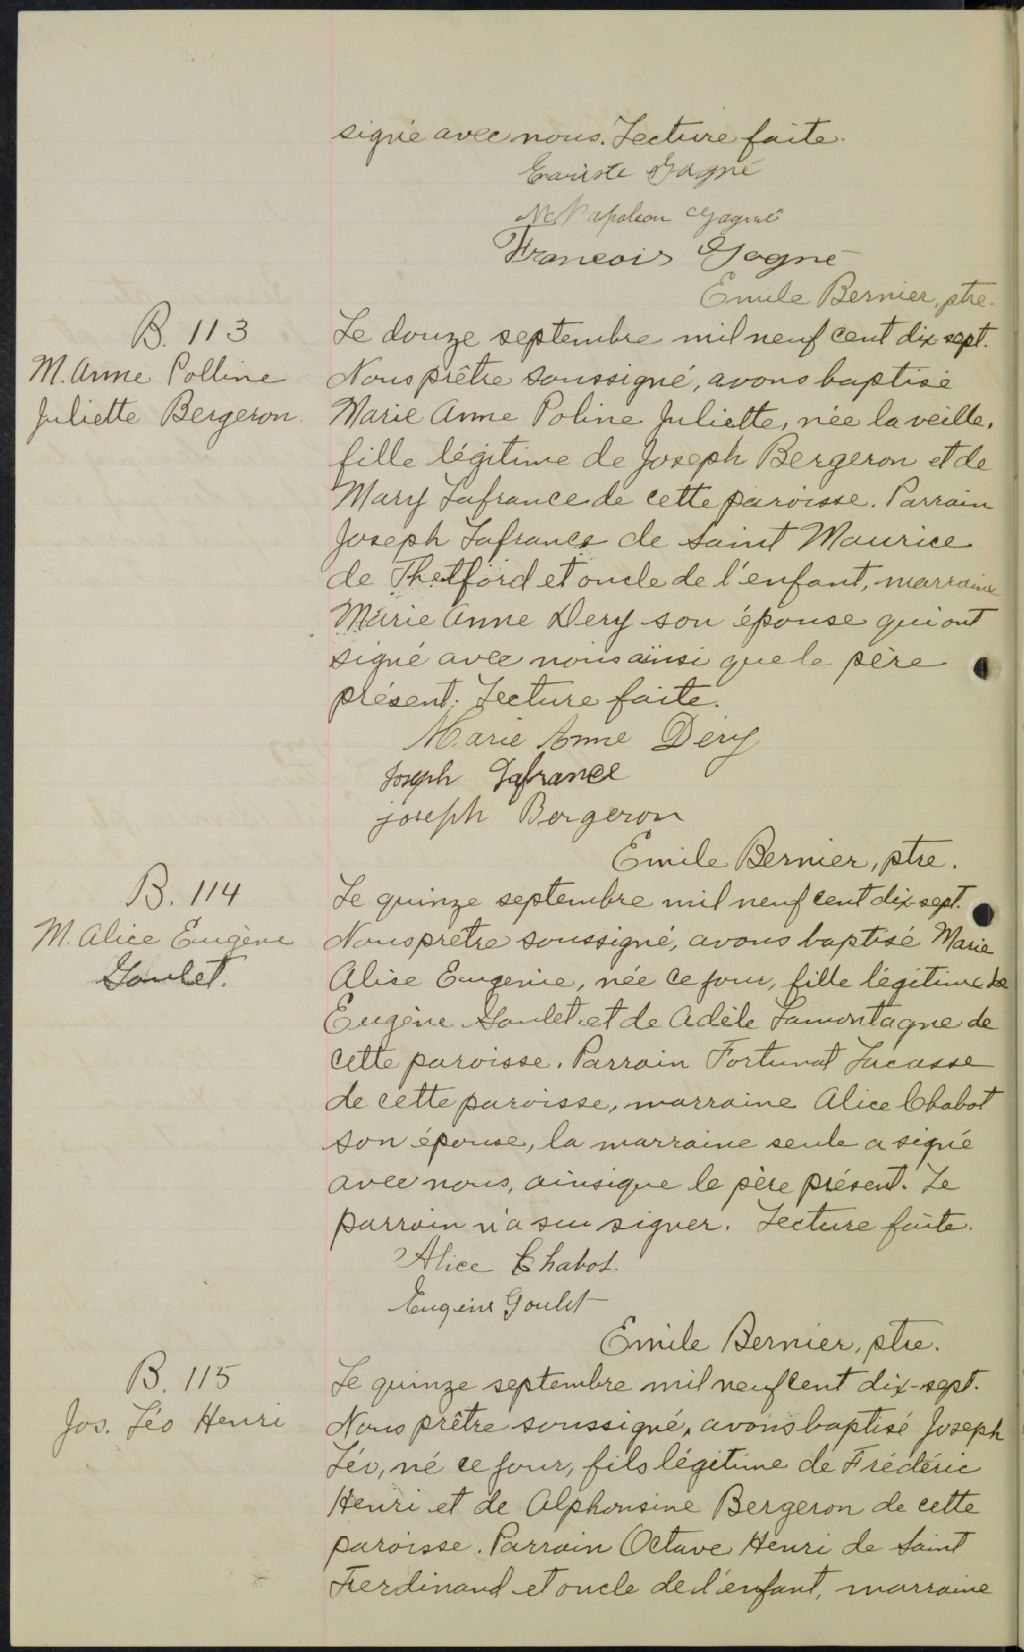 signé avec nous. Lecture faite.
Evariste Gagné
Napoléon Gagné
Francois Gagné
Emile Bernier, ptre.
B. 113
M. Anne Polline
Juliette Bergeron.
Le douze septembre mil neuf cent dix sept.
Nous prêtre soussigné, avons baptisé
Marie Anne Poline Juliette, née la veille,
fille légitime de Joseph Bergeron et de
Mary Lafrance de cette paroisse. Parrain
Joseph Lafrance de Saint Maurice
de Thetford et oncle de l'enfant, marraine
Marie Anne Dery son épouse qui ont
signé avec nous ainsi que le père
présent. Lecture faite.
Marie Anne Déry
Joseph Lafrance
joseph Bergeron
Emile Bernier, ptre.
B. 114
M. Alice Eugène
Goulet.
Le quinze septembre mil neuf cent dix-sept.
Nous prêtre soussigné, avons baptisé Marie
Alise Eugenie, née ce jour, fille légitime de
Eugène Goulet et de Adèle Lamontagne de
cette paroisse. Parrain Fortunat Lacasse
de cette paroisse, marraine Alice Chabot
son épouse, la marraine seule a signé
avec nous, ainsi que le père présent. Le
parrain n'a su signer. Lecture faite.
Alice Chabot.
Eugène Goulet
Emile Bernier, ptre.
B. 115
Jos. Léo Henri
Le quinze septembre mil neuf cent dix-sept.
Nous prêtre soussigné, avons baptisé Joseph
Léo, né ce jour, fils légitime de Frédéric
Henri et de Alphonsine Bergeron de cette
paroisse. Parrain Octave Henri de Saint
Ferdinand et oncle de l'enfant, marraine